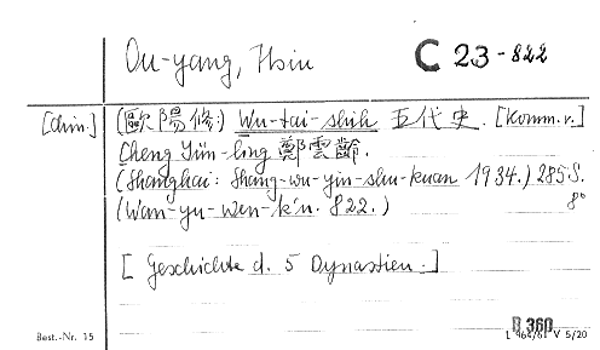 Ou-yang, Hsiu C 23-822
[chin.] (歐陽修) Wu-tai-shih 五代史. [Komm. v.]
Cheng Yün-ling 鄭雲齡.
(Shanghai: Shang-wu-yin-shu-kuan 1934.) 285 S.
(Wan-yu-wen-k'u. 822.) 8°
[Geschichte d. 5 Dynastien.]
B 360
Best.-Nr. 15 L 964/61 V 5/20